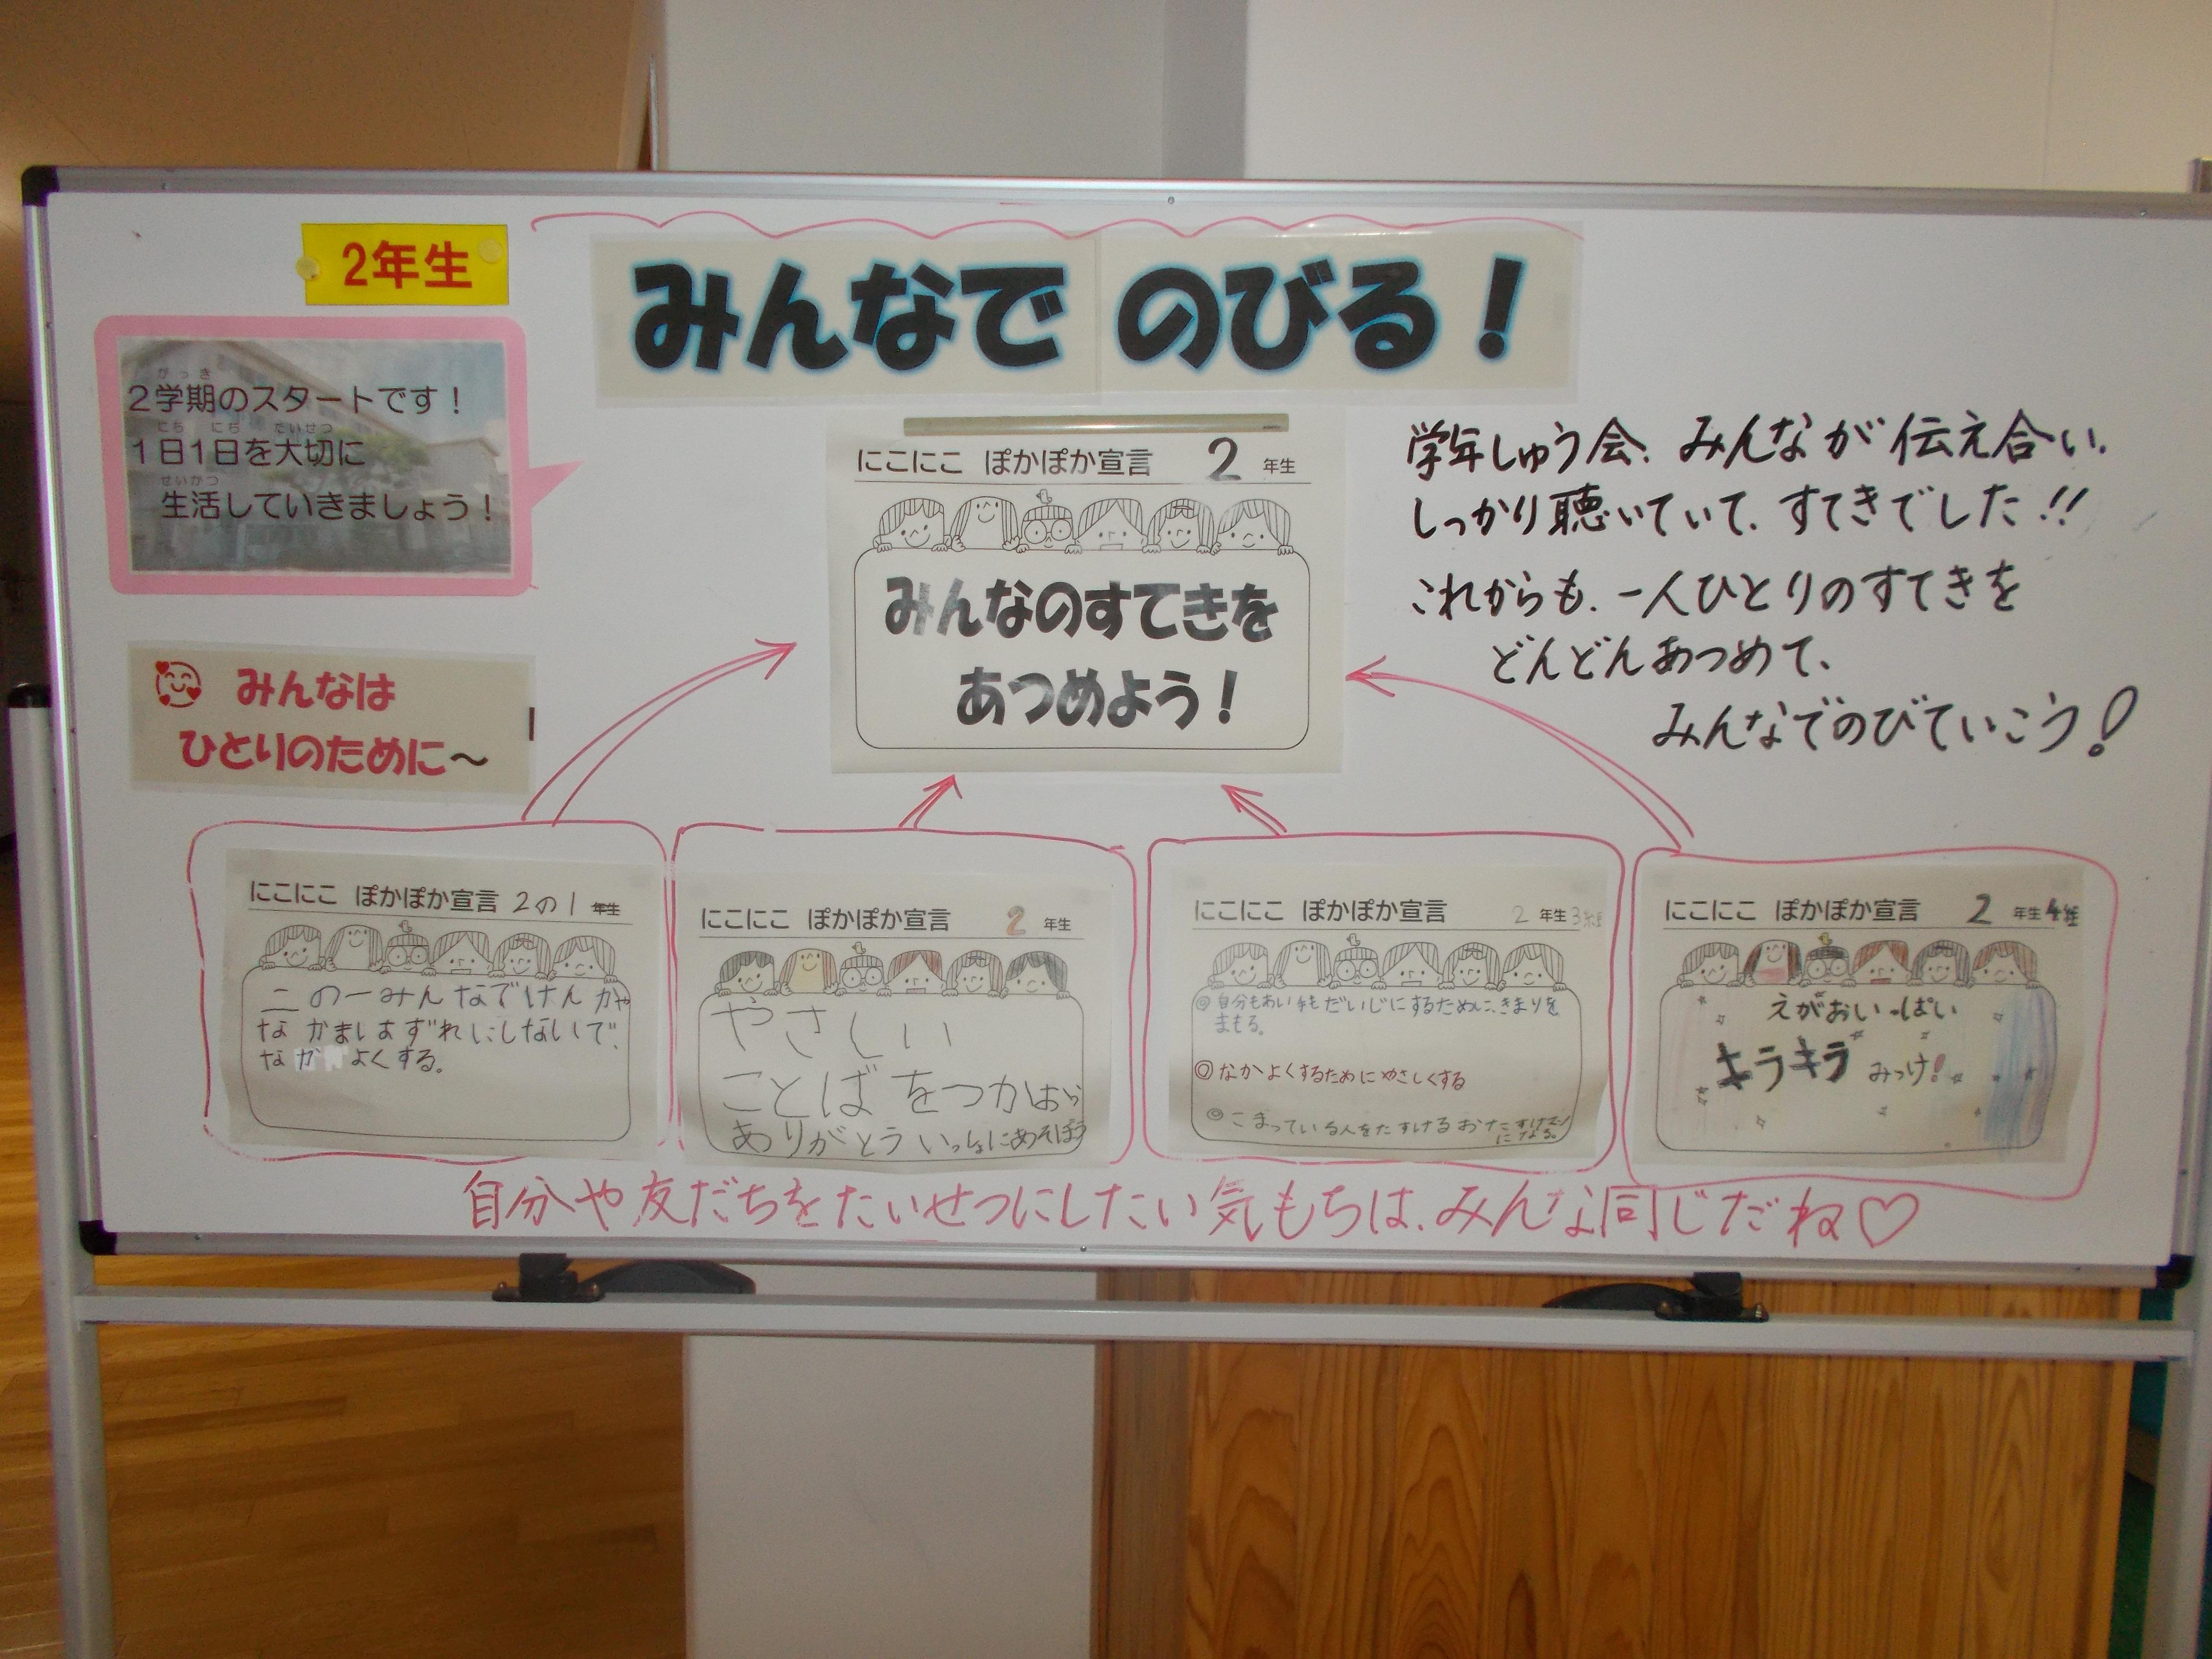 2年生
みんなで のびる！
2学期のスタートです！
1日1日を大切に
生活していきましょう！
にこにこ ぽかぽか宣言 2 年生
みんなのすてきを
あつめよう！
学年しゅう会、みんなが伝え合い、
しっかり聴いていて、すてきでした!!
これからも、一人ひとりのすてきを
どんどんあつめて、
みんなでのびていこう！
みんなは
ひとりのために～
にこにこ ぽかぽか宣言 2の1 年生
二の一みんなでけんかや
なかまはずれにしないで、
なか よくする。
にこにこ ぽかぽか宣言 2 年生
やさしい
ことばをつかおう
ありがとう いっしょにあそぼう
にこにこ ぽかぽか宣言 2 年生3組
◎自分もあい手もだいじにするために、きまりを
まもる。
◎なかよくするためにやさしくする
◎こまっている人をたすける
にこにこ ぽかぽか宣言 2 年生4組
えがおいっぱい
キラキラ みっけ！
自分や友だちをたいせつにしたい気もちは、みんな同じだね♡